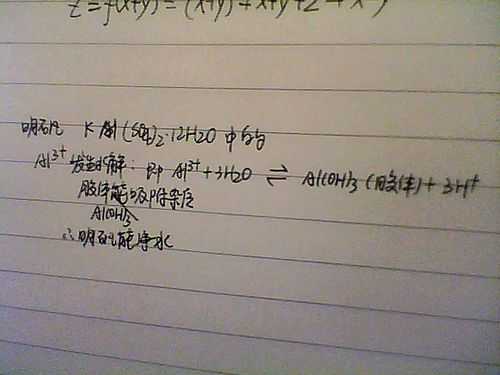 z = f(x+y) = (x+y)² + x+y+2
明矾 KAl(SO4)2·12H2O 中的
Al³⁺发生水解: 即 Al³⁺+3H2O ⇌ Al(OH)3 (胶体)+3H⁺
胶体能吸附杂质
Al(OH)3
∴明矾能净水